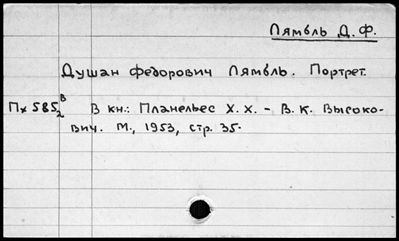 Лямбль Д. Ф.
Душан Федорович Лямбль. Портрет.
Пх 585 В/2 В кн.: Планельес Х. Х. - В. К. Высоко-
вич. М., 1953, стр. 35.